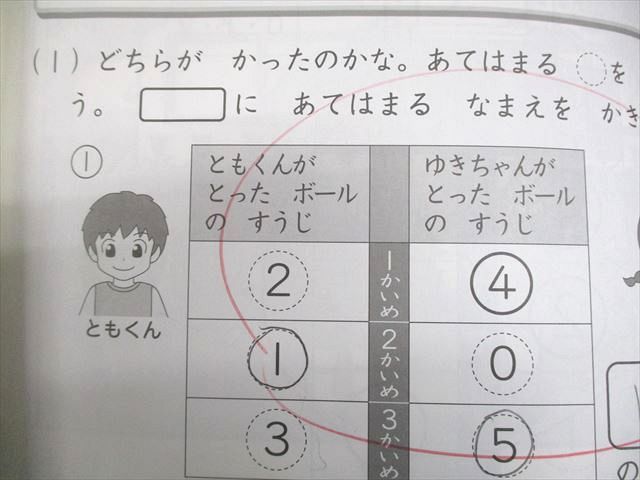 (1) どちらが かったのかな。あてはまる ◯を
う。 □に あてはまる なまえを かき
①
ともくんが
とった ボール
の すうじ
ゆきちゃんが
とった ボール
の すうじ
2
1かいめ
4
ともくん
1
2かいめ
0
3
3かいめ
5
の